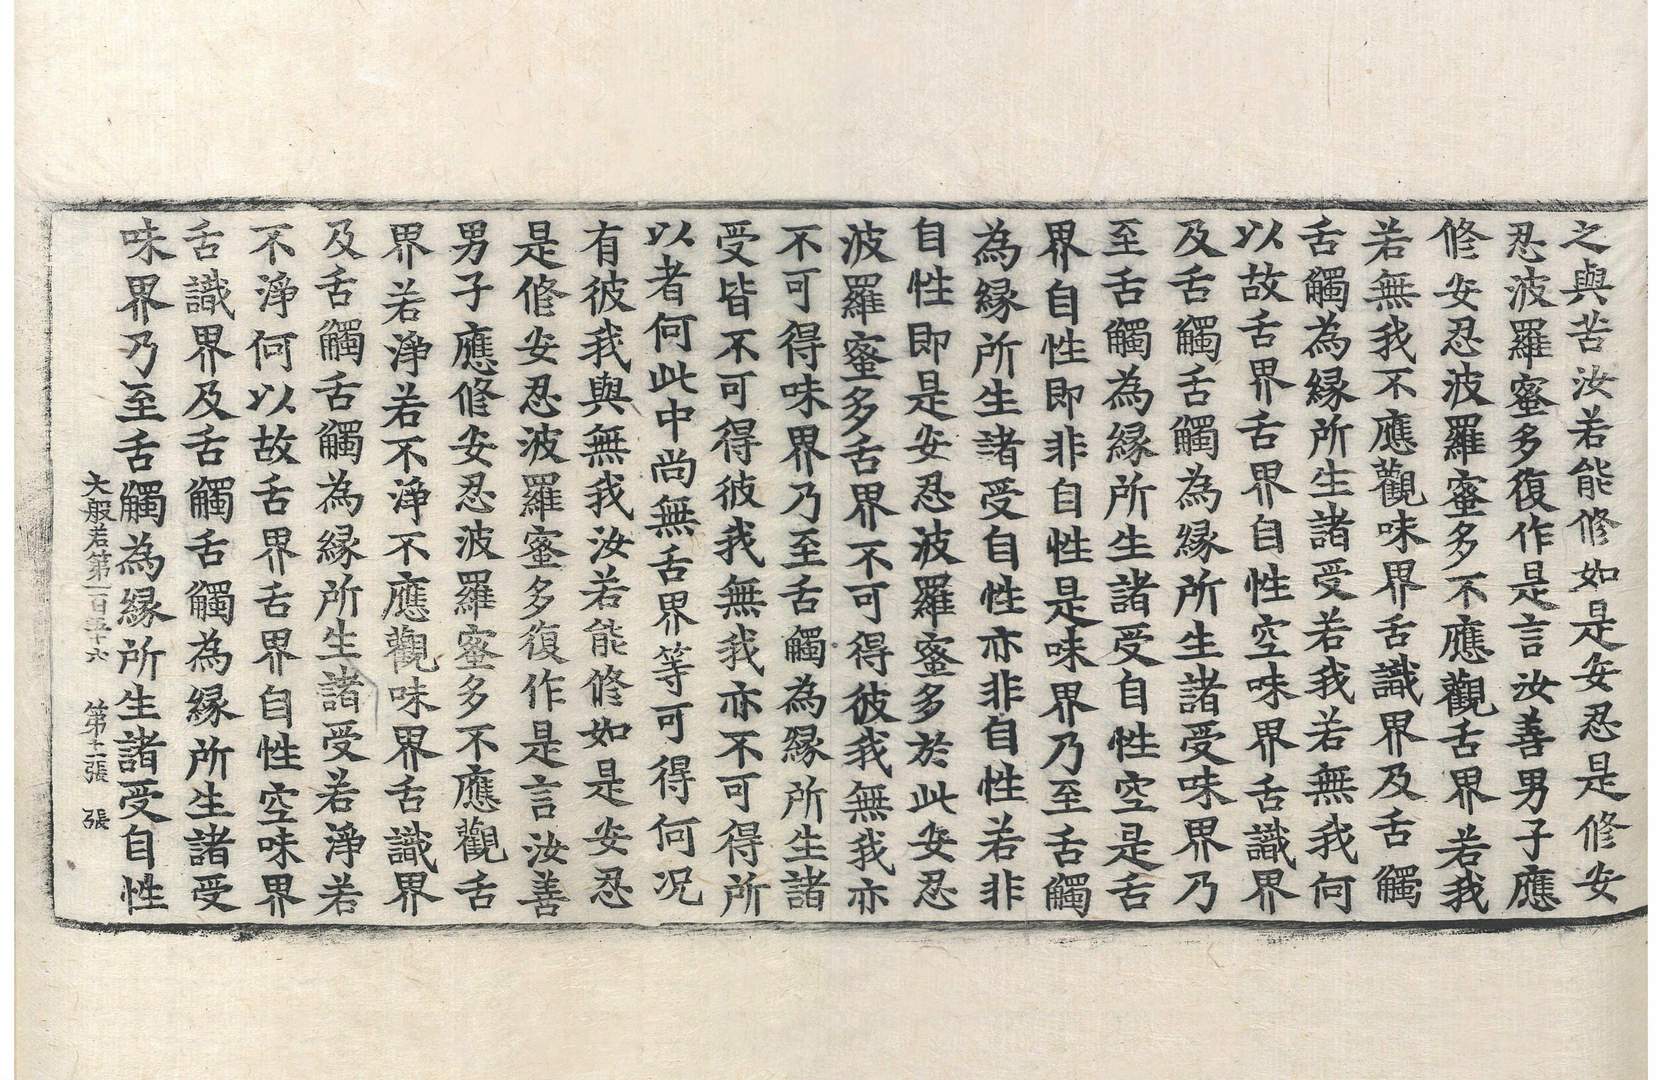 之與苦汝若能修如是安忍是修安
忍波羅蜜多復作是言汝善男子應
修安忍波羅蜜多不應觀舌界若我
若無我不應觀味界舌識界及舌觸
舌觸為緣所生諸受若我若無我何
以故舌界舌界自性空味界舌識界
及舌觸舌觸為緣所生諸受味界乃
至舌觸為緣所生諸受自性空是舌
界自性即非自性是味界乃至舌觸
為緣所生諸受自性亦非自性若非
自性即是安忍波羅蜜多於此安忍
波羅蜜多舌界不可得彼我無我亦
不可得味界乃至舌觸為緣所生諸
受皆不可得彼我無我亦不可得所
以者何此中尚無舌界等可得何况
有彼我與無我汝若能修如是安忍
是修安忍波羅蜜多復作是言汝善
男子應修安忍波羅蜜多不應觀舌
界若淨若不淨不應觀味界舌識界
及舌觸舌觸為緣所生諸受若淨若
不淨何以故舌界舌界自性空味界
舌識界及舌觸舌觸為緣所生諸受
味界乃至舌觸為緣所生諸受自性
大般若第一百五十六 第張 張